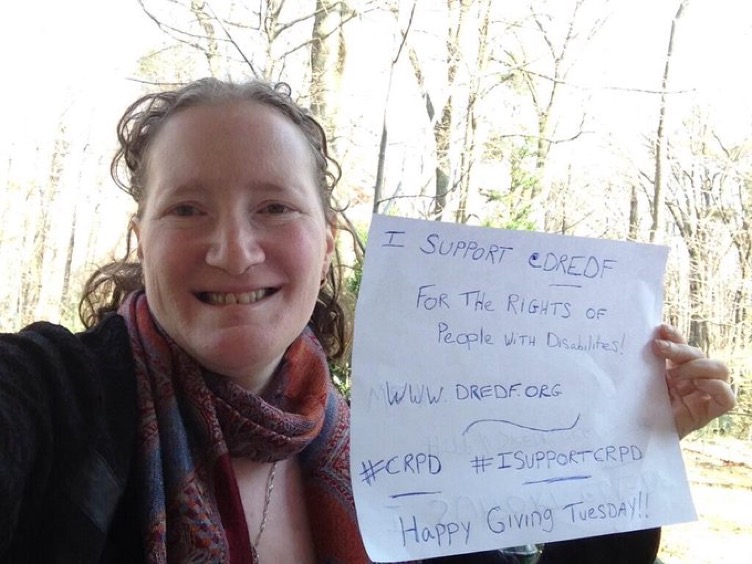 I SUPPORT @DREDF
FOR THE RIGHTS OF
People WITH Disabilities!
WWW.DREDF.ORG
#CRPD #ISUPPORTCRPD
Happy Giving Tuesday!!